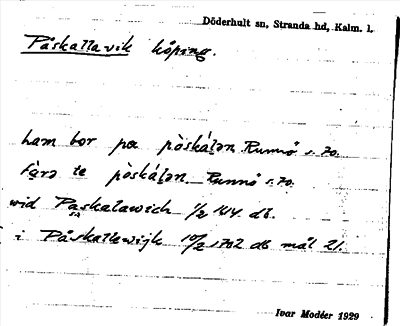 Döderhult sn, Stranda hd, Kalm. l.
Påskallavik köping.
ham bor pa pòskálən Runnö s. 70.
Fàrə te pòskálən Runnö s. 70.
wid Paskalawich 1/2 1614 db.
i Påskallewijk 10/2 1702 db mål 21.
Ivar Modéer 1929